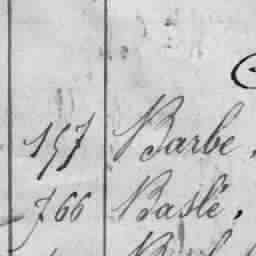 157 Barbe,
766 Baslé,